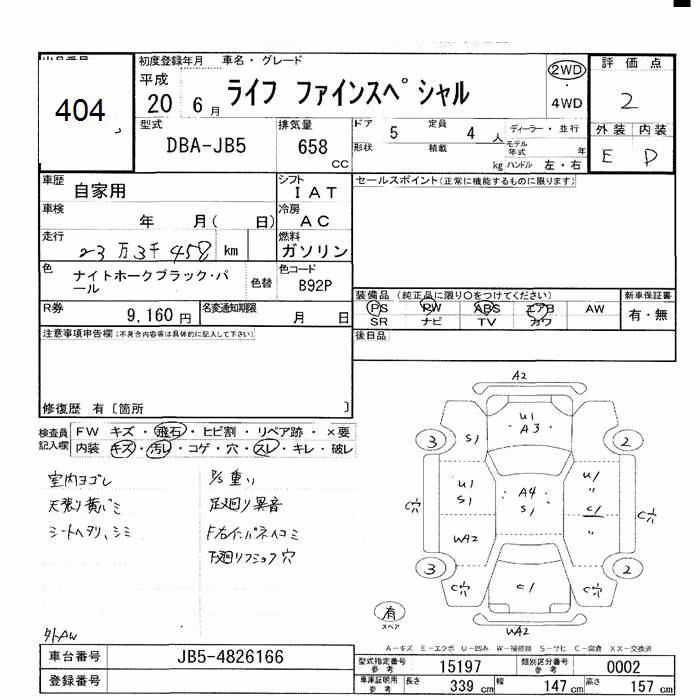 初度登録年月 車名・グレード 評価点
404
平成 20 6月 ライフ ファインスペシャル 2WD ・ 4WD 2
型式 排気量 ドア 5 定員 4 人 ディーラー・並行 外装 内装
DBA-JB5 658 CC 形状 積載 kg モデル年式 年 ハンドル 左・右 E D
車歴 自家用 シフト IAT セールスポイント(正常に機能するものに限ります)
車検 年 月( 日) 冷房 AC
走行 23万3千458 km 燃料 ガソリン
色 ナイトホークブラック・パール 色替 色コード B92P
装備品 (純正品に限り〇をつけてください) 新車保証書
R券 9,160円 名変通知期限 月 日 PS PW ABS エアB AW 有・無
SR ナビ TV カワ
注意事項申告欄(不具合内容等は具体的に記入して下さい) 後日品
修復歴 有〔箇所 〕
検査員記入欄 FW キズ・飛石・ヒビ割・リペア跡・×要
内装 キズ・汚レ・コゲ・穴・スレ・キレ・破レ
室内ヨゴレ P/S重い
天張り黄バミ 足廻り異音
シートヘタリ、シミ
下廻りフショク穴
A2
U1
A3
3 S1 2
U1 S1 A4 S1 U1 〃
C穴 C1 C穴
UA2 〃
3 C穴 C1 C穴 2
有 スペア UA2
外AW
A-キズ E-エクボ U-凹み W-補修跡 S-サビ C-腐食 XX-交換済
車台番号 JB5-4826166 型式指定番号 参考 15197 類別区分番号 参考 0002
登録番号 車庫証明用 参考 長さ 339 cm 幅 147 cm 高さ 157 cm